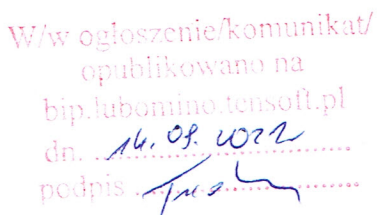 W/w ogłoszenie/komunikat/
opublikowano na
bip.lubomino.tensoft.pl
dn. 14.09.2022
podpis